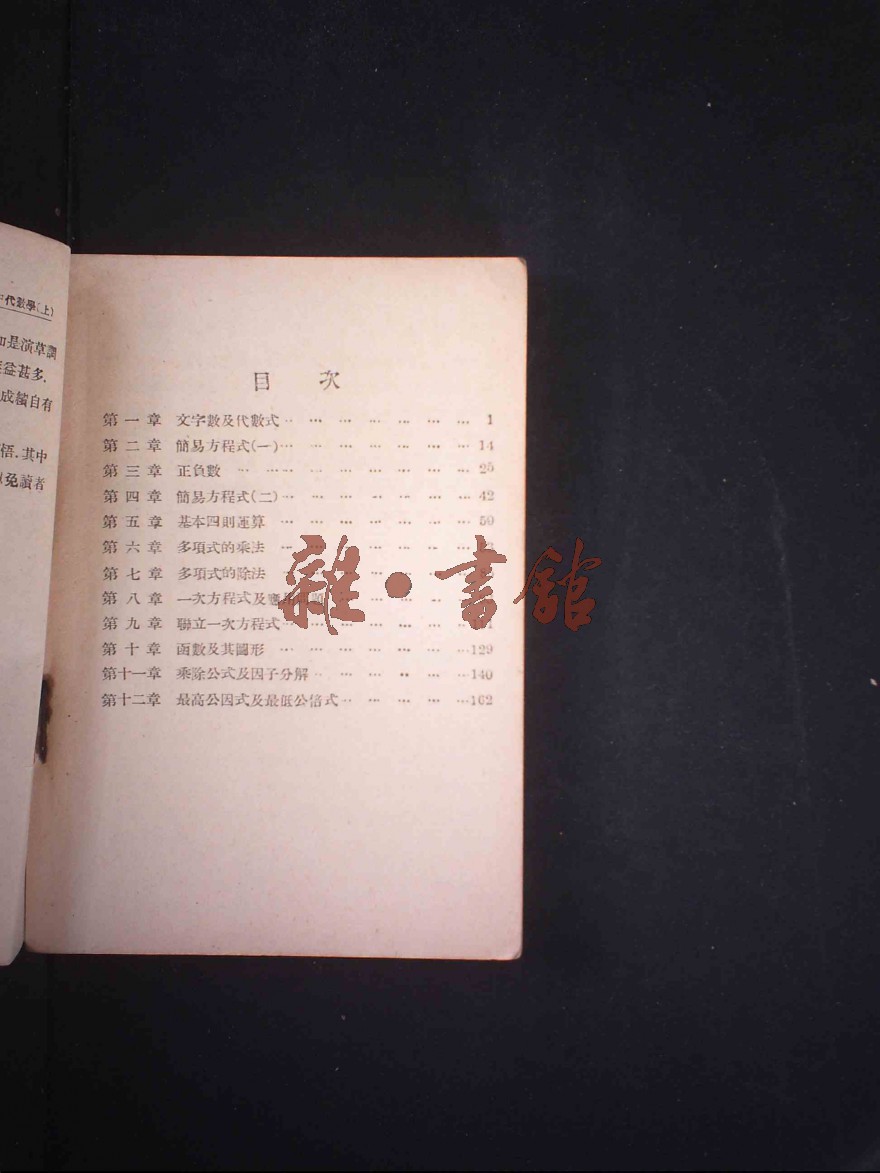 代數學(上)
是演草
益甚多.
成績自有
悟.其中
免讀者
目 次
第一章 文字數及代數式 1
第二章 簡易方程式(一) 14
第三章 正負數 25
第四章 簡易方程式(二) 42
第五章 基本四則運算
第六章 多項式的乘法
第七章 多項式的除法
第八章 一次方程式及應用問題
第九章 聯立一次方程式
第十章 函數及其圖形 129
第十一章 乘除公式及因子分解 140
第十二章 最高公因式及最低公倍式 162
雜·書館